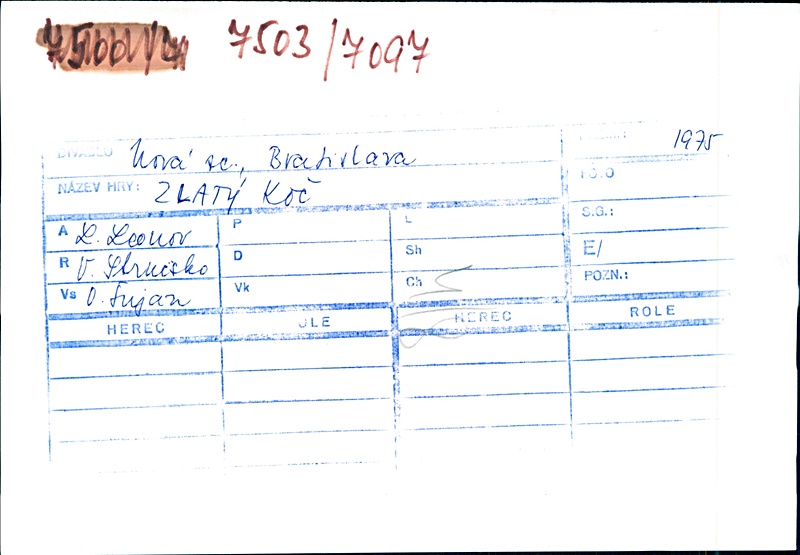 7503/7097
DIVADLO Nová sc., Bratislava 1975
NÁZEV HRY: ZLATÝ KOČ
A L. Leonov P L S.G.:
R V. Strnisko D Sh E/
Vs O. Šujan Vk Ch POZN.:
HEREC ROLE HEREC ROLE